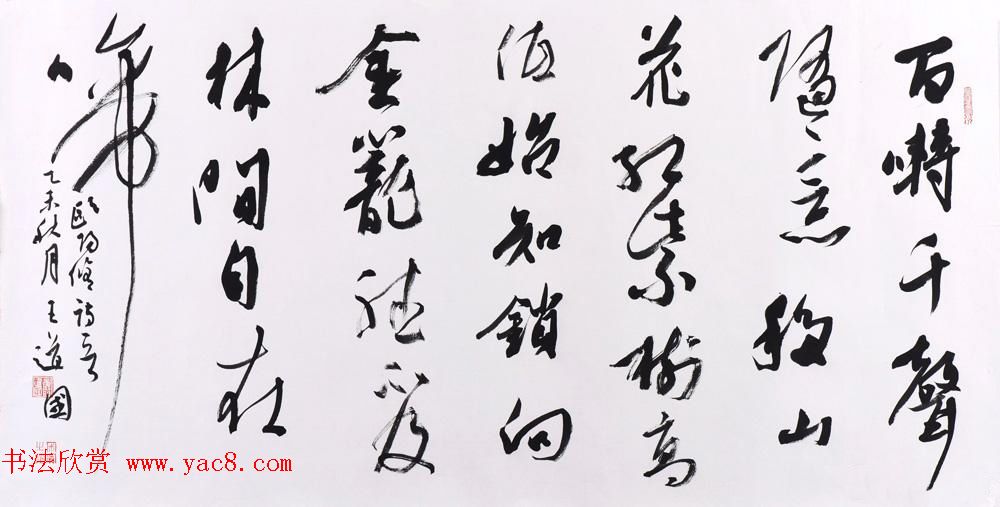 百囀千聲
隨意移山
花紅紫樹高
低始知鎖向
金籠聽不及
林間自在
啼
歐陽脩詩
乙未秋月王道國
书法欣赏 www.yac8.com